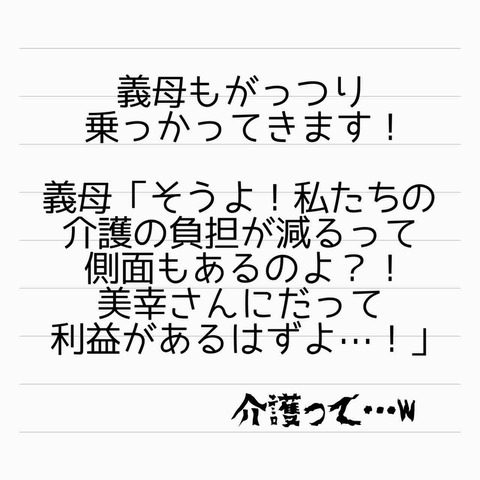 義母もがっつり
乗っかってきます！
義母「そうよ！私たちの
介護の負担が減るって
側面もあるのよ？！
美幸さんにだって
利益があるはずよ…！」
介護って…w